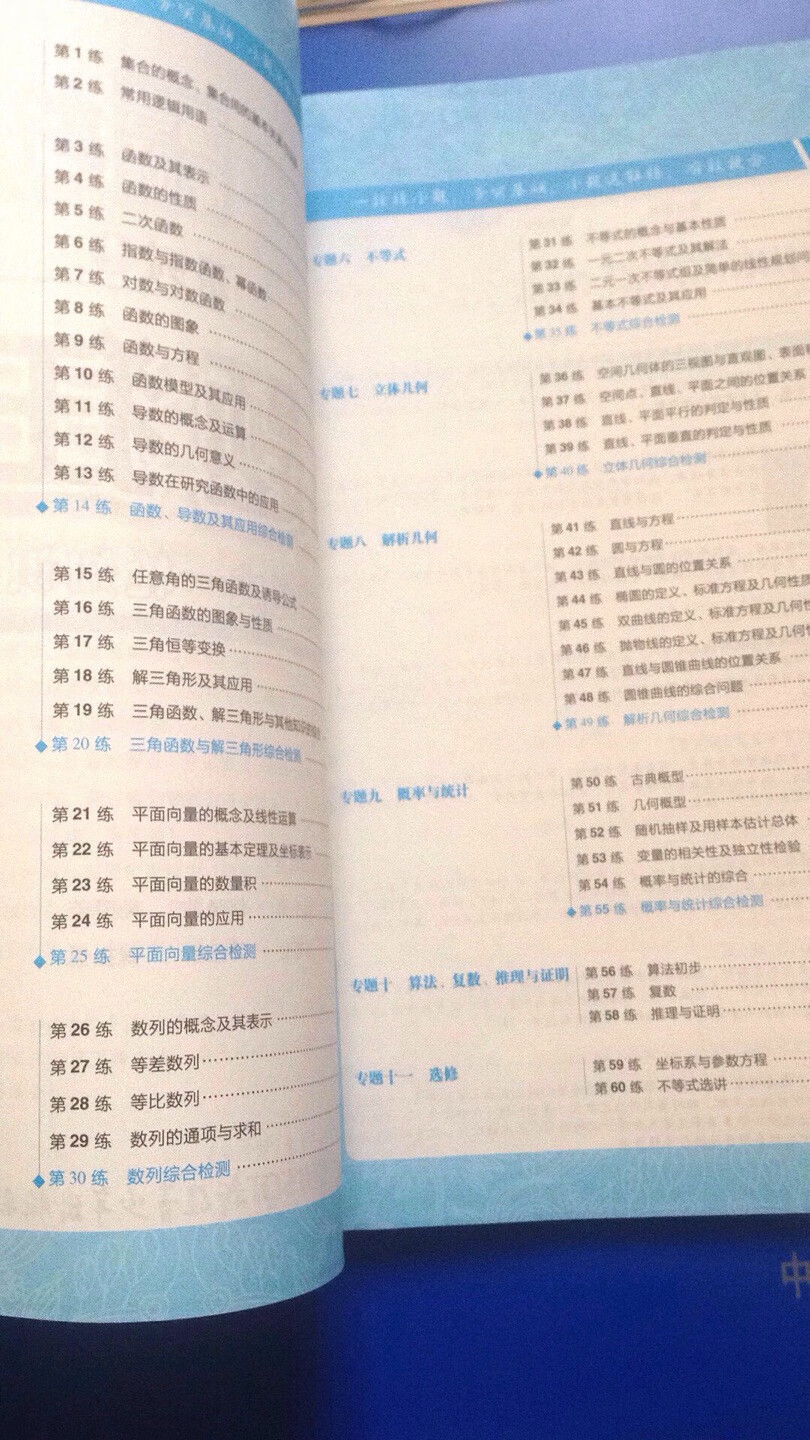 第1练 集合的概念、集合间的基本
第2练 常用逻辑用语
第3练 函数及其表示
第4练 函数的性质
第5练 二次函数
第6练 指数与指数函数、幂函数
第7练 对数与对数函数
第8练 函数的图象
第9练 函数与方程
第10练 函数模型及其应用
第11练 导数的概念及运算
第12练 导数的几何意义
第13练 导数在研究函数中的应用
◆第14练 函数、导数及其应用综合检测
第15练 任意角的三角函数及诱导公式
第16练 三角函数的图象与性质
第17练 三角恒等变换
第18练 解三角形及其应用
第19练 三角函数、解三角形与其他知识的
◆第20练 三角函数与解三角形综合检测
第21练 平面向量的概念及线性运算
第22练 平面向量的基本定理及坐标表示
第23练 平面向量的数量积
第24练 平面向量的应用
◆第25练 平面向量综合检测
第26练 数列的概念及其表示
第27练 等差数列
第28练 等比数列
第29练 数列的通项与求和
◆第30练 数列综合检测
专题六 不等式
第31练 不等式的概念与基本性质
第32练 一元二次不等式及其解法
第33练 二元一次不等式组及简单的线性规划问
第34练 基本不等式及其应用
◆第35练 不等式综合检测
专题七 立体几何
第36练 空间几何体的三视图与直观图、表面
第37练 空间点、直线、平面之间的位置关系
第38练 直线、平面平行的判定与性质
第39练 直线、平面垂直的判定与性质
◆第40练 立体几何综合检测
专题八 解析几何
第41练 直线与方程
第42练 圆与方程
第43练 直线与圆的位置关系
第44练 椭圆的定义、标准方程及几何性质
第45练 双曲线的定义、标准方程及几何性
第46练 抛物线的定义、标准方程及几何
第47练 直线与圆锥曲线的位置关系
第48练 圆锥曲线的综合问题
◆第49练 解析几何综合检测
专题九 概率与统计
第50练 古典概型
第51练 几何概型
第52练 随机抽样及用样本估计总体
第53练 变量的相关性及独立性检验
第54练 概率与统计的综合
◆第55练 概率与统计综合检测
专题十 算法、复数、推理与证明
第56练 算法初步
第57练 复数
第58练 推理与证明
专题十一 选修
第59练 坐标系与参数方程
第60练 不等式选讲
中